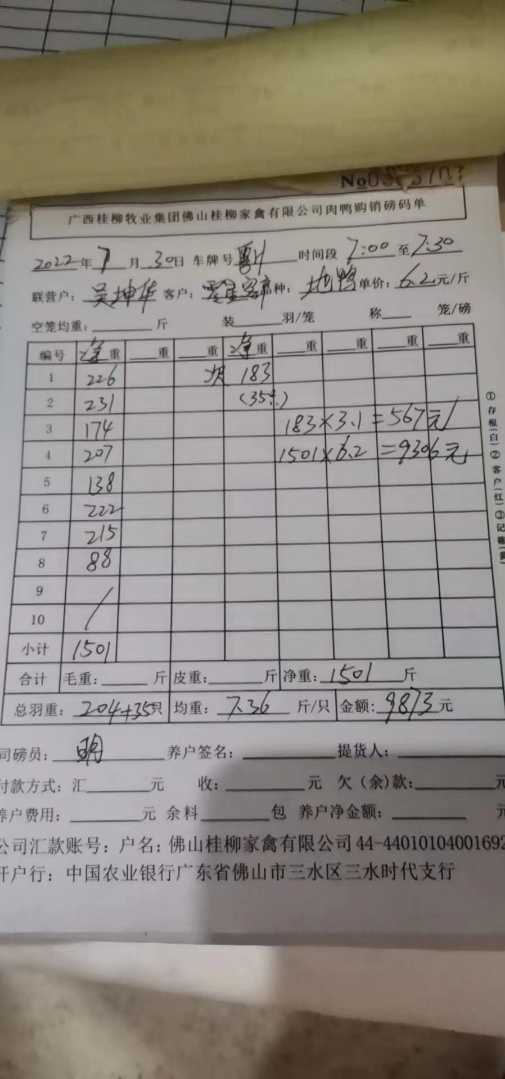 No
广西桂柳牧业集团佛山桂柳家禽有限公司肉鸭购销磅码单
2022年7月30日 车牌号 时间段 7:00 至 7:30
联营户: 吴坤华 客户: 种: 单价: 6.2元/斤
空笼均重: 斤 装 羽/笼 称 笼/磅
编号 净重 重 重 净重 重 重 重
1 226 183
2 231 (35只)
3 174 183×3.1=567元
4 207 1501×6.2=9306元
5 138
6 222
7 215
8 88
9 /
10
小计 1501
合计 毛重: 斤 皮重: 斤 净重: 1501 斤
总羽重: 204+35只 均重: 7.36 斤/只 金额: 9873元
司磅员: 明 养户签名: 提货人:
付款方式: 汇 元 收: 元 欠(余)款: 元
养户费用: 元 余料 包 养户净金额: 元
公司汇款账号: 户名: 佛山桂柳家禽有限公司 44-44010104001692
开户行: 中国农业银行广东省佛山市三水区三水时代支行
①存根(白)②客户(红)③记账